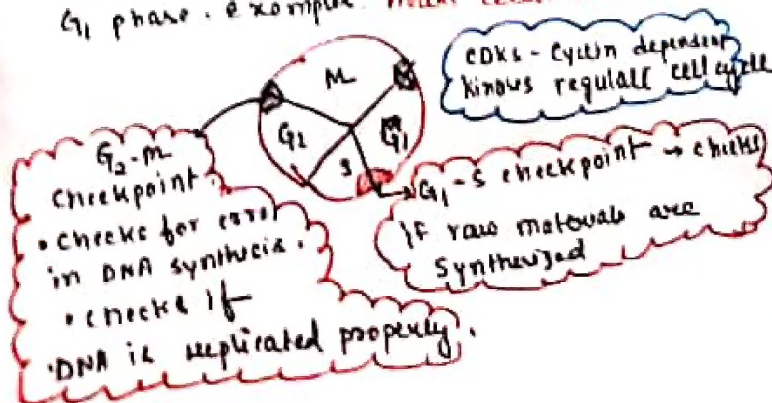 G₁ phase. example.
CDKs - Cyclin dependent
kinases regulate cell cycle
M
G₂
G₁
S
G₂-M
Checkpoint.
• Checks for error
in DNA synthesis.
• Checks if
DNA is replicated properly.
G₁-S checkpoint → checks
if raw materials are
synthesized